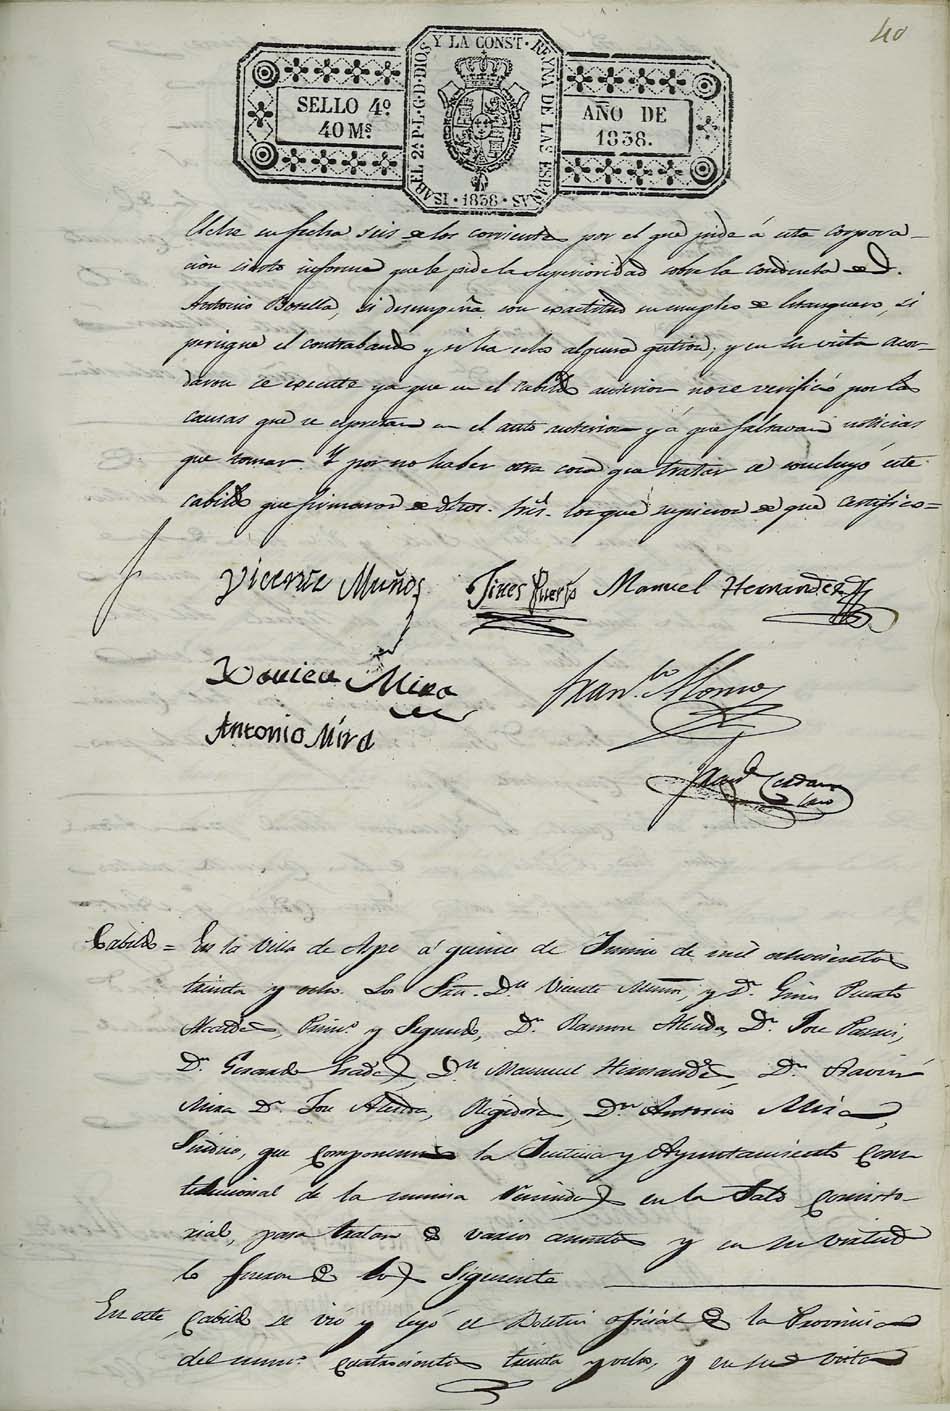 40
ISABEL 2ª P.L.G.D.DIOS Y LA CONST. REYNA DE LAS ESPAÑAS
SELLO 4º
40 Ms.
AÑO DE
1838.
· 1838 ·
Elche su fecha seis de los corrientes por el que pide á esta corpora-
cion cierto informe que le pide la Superioridad sobre la conducta de D.
Antonio Botella, si desempeña con exactitud su empleo de Estanquero, si
persigue el contrabando y si ha echo alguna gestion; y en su vista acor-
daron se execute ya que en el Cabildo anterior no se verificó por las
causas que se espresan en el auto anterior y á que faltavan noticias
que tomar. Y por no haber otra cosa que tratar se concluyó este
cabildo que firmaron de dhos. Sres. los que supieron de que certifico=
Vicente Muñoz Jines Puerto Manuel Hernandez
Xavier Mira Franco. Alonso
Antonio Mira
Cabildo = En la Villa de Aspe á quince de Junio de mil ochocientos
treinta y ocho. Los Sres. Dn. Vicente Muñoz, y Dn. Gines Puerto
Alcaldes, Primo. y Segundo, Dn. Ramon Alcuda, Dn. Jose Pavia,
Dn. Gerardo Dn. Manuel Hernandez, Dn. Xavier
Mira Dn. Jose Regidores, Dn. Antonio Mira,
Sindico, que componen la Justicia y Ayuntamiento Cons-
titucional de la misma reunidos en la Sala Consisto-
rial, para tratar de varios asuntos y en su virtud
lo fueron de los Siguiente
En este Cabildo se vio y leyó el Boletin oficial de la Provincia
del numo. cuatrocientos treinta y ocho, y en su vista